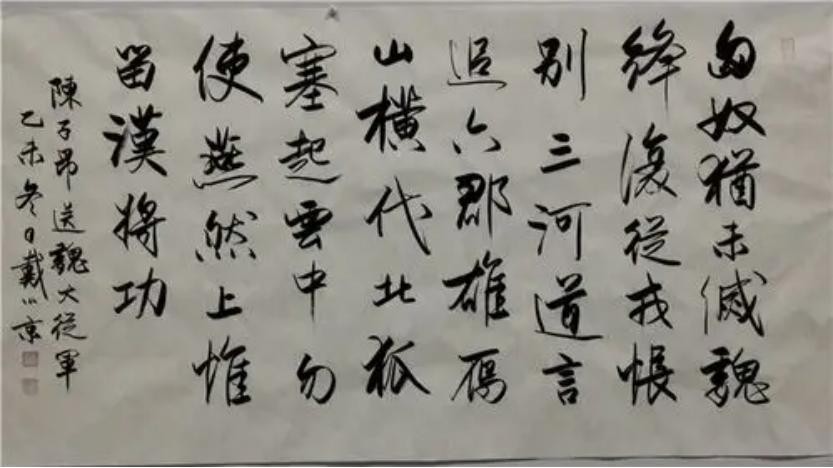 匈奴猶未滅魏
絳復從戎悵
別三河道言
追六郡雄鴈
山橫代北狐
塞起雲中勿
使燕然上惟
留漢將功
陳子昂送魏大從軍
乙未冬日戴小京